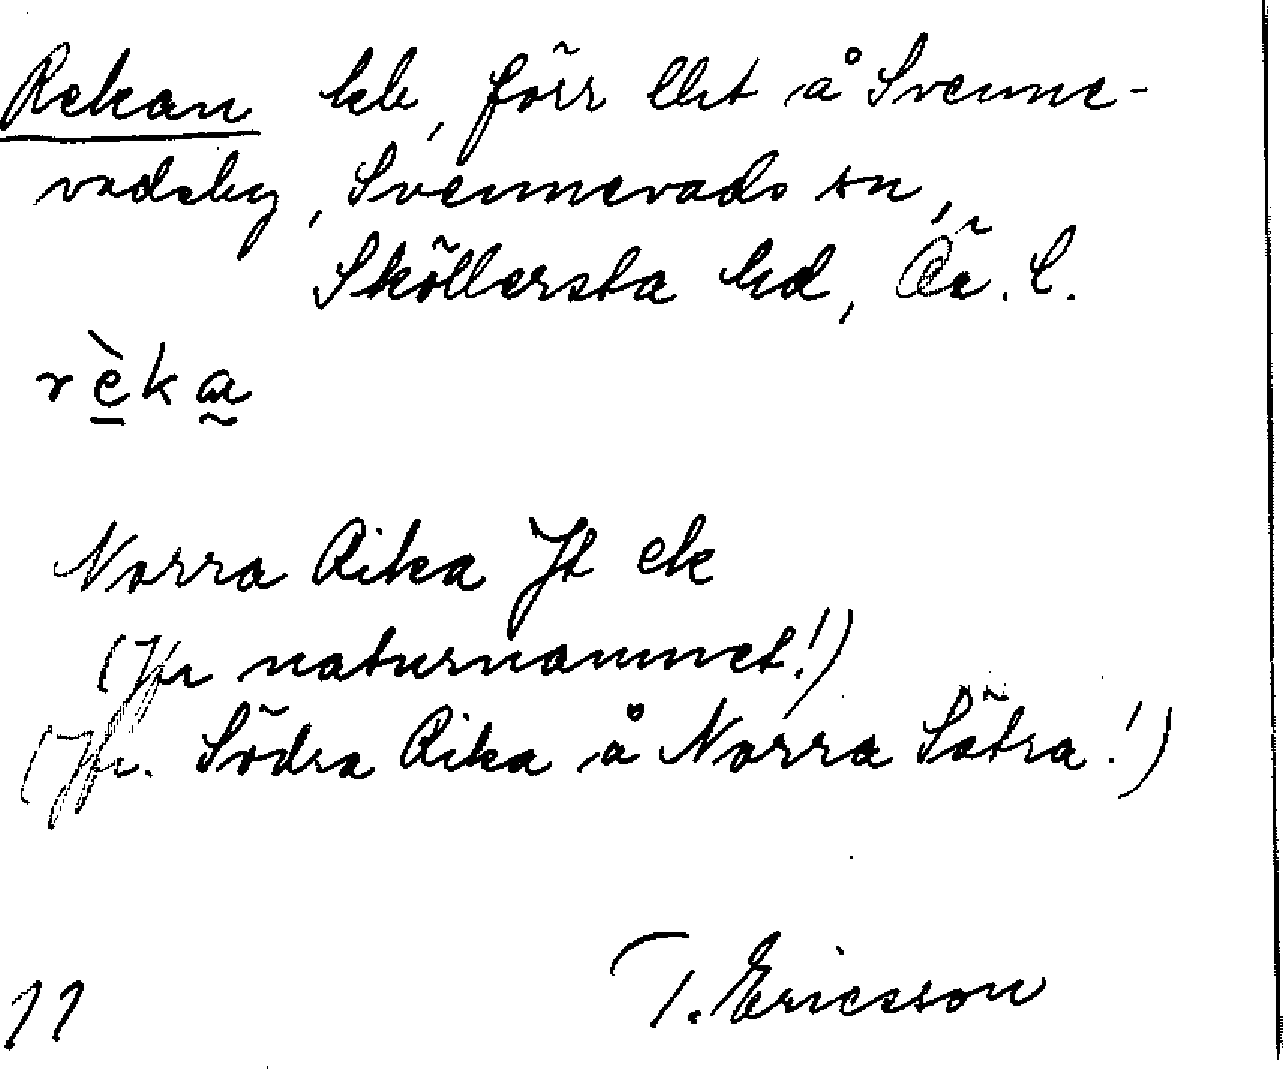 Rekan hb, förr lht å Svenne-
vadsby, Svennevads sn,
Sköllersta hd, Ör. l.
rèka
Norra Rika Jt ek
(Jfr naturnamnet!)
(Jfr. Södra Rika å Norra Sätra!)
T. Ericsson